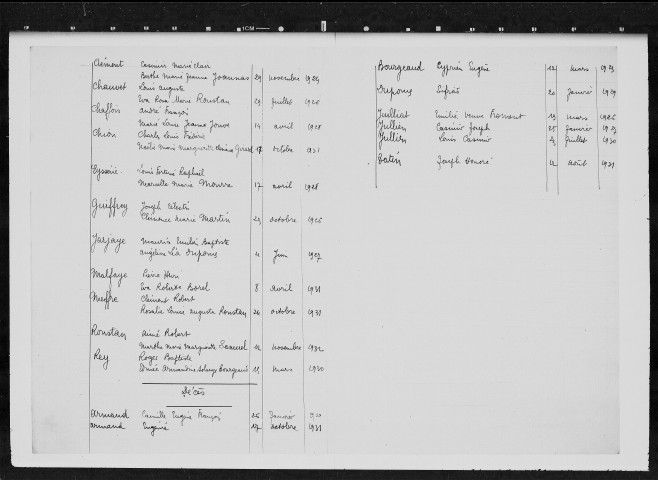 Clément Casimir Marie Clair
Berthe Marie Jeanne Joannas 29 novembre 1924
Chauvet Louis Auguste
Eva Rosa Marie Roustan 29 juillet 1926
Chaffois André François
Marie Louise Jeanne Jouve 14 avril 1928
Chion Charles Louis Frédéric
Marie Marguerite 17 octobre 1931
Eysséric Louis Raphaël
Marcelle Marie Mourre 17 avril 1928
Guiffrey Joseph Célestin
Clémence Marie Martin 23 octobre 1926
Jarjaye Maurice Emilien Baptiste
Angéline Léa Dupony 11 Juin 1927
Malfaye Pierre Henri
Eva Roberte Borel 8 avril 1931
Meffre Clément Robert
Rosalie Louise Augusta Roustan 24 octobre 1931
Roustan Aimé Robert
Marthe Marie Marguerite Samuel 12 novembre 1932
Rey Roger Baptiste
Armandine Solange Bourgeaud 11 mars 1930
Décès
Armand Camille Eugène François 26 Janvier
Armand Eugénie 17 octobre 1931
Bourgeaud Cyprien Eugène 12 mars 1923
Dupony 20 Janvier 1929
Juilliat Emilie Veuve 19 mars 1926
Jullien Casimir Joseph 25 Janvier 1929
Jullien Louis Casimir 3 juillet 1930
Joseph Honoré 12 août 1931